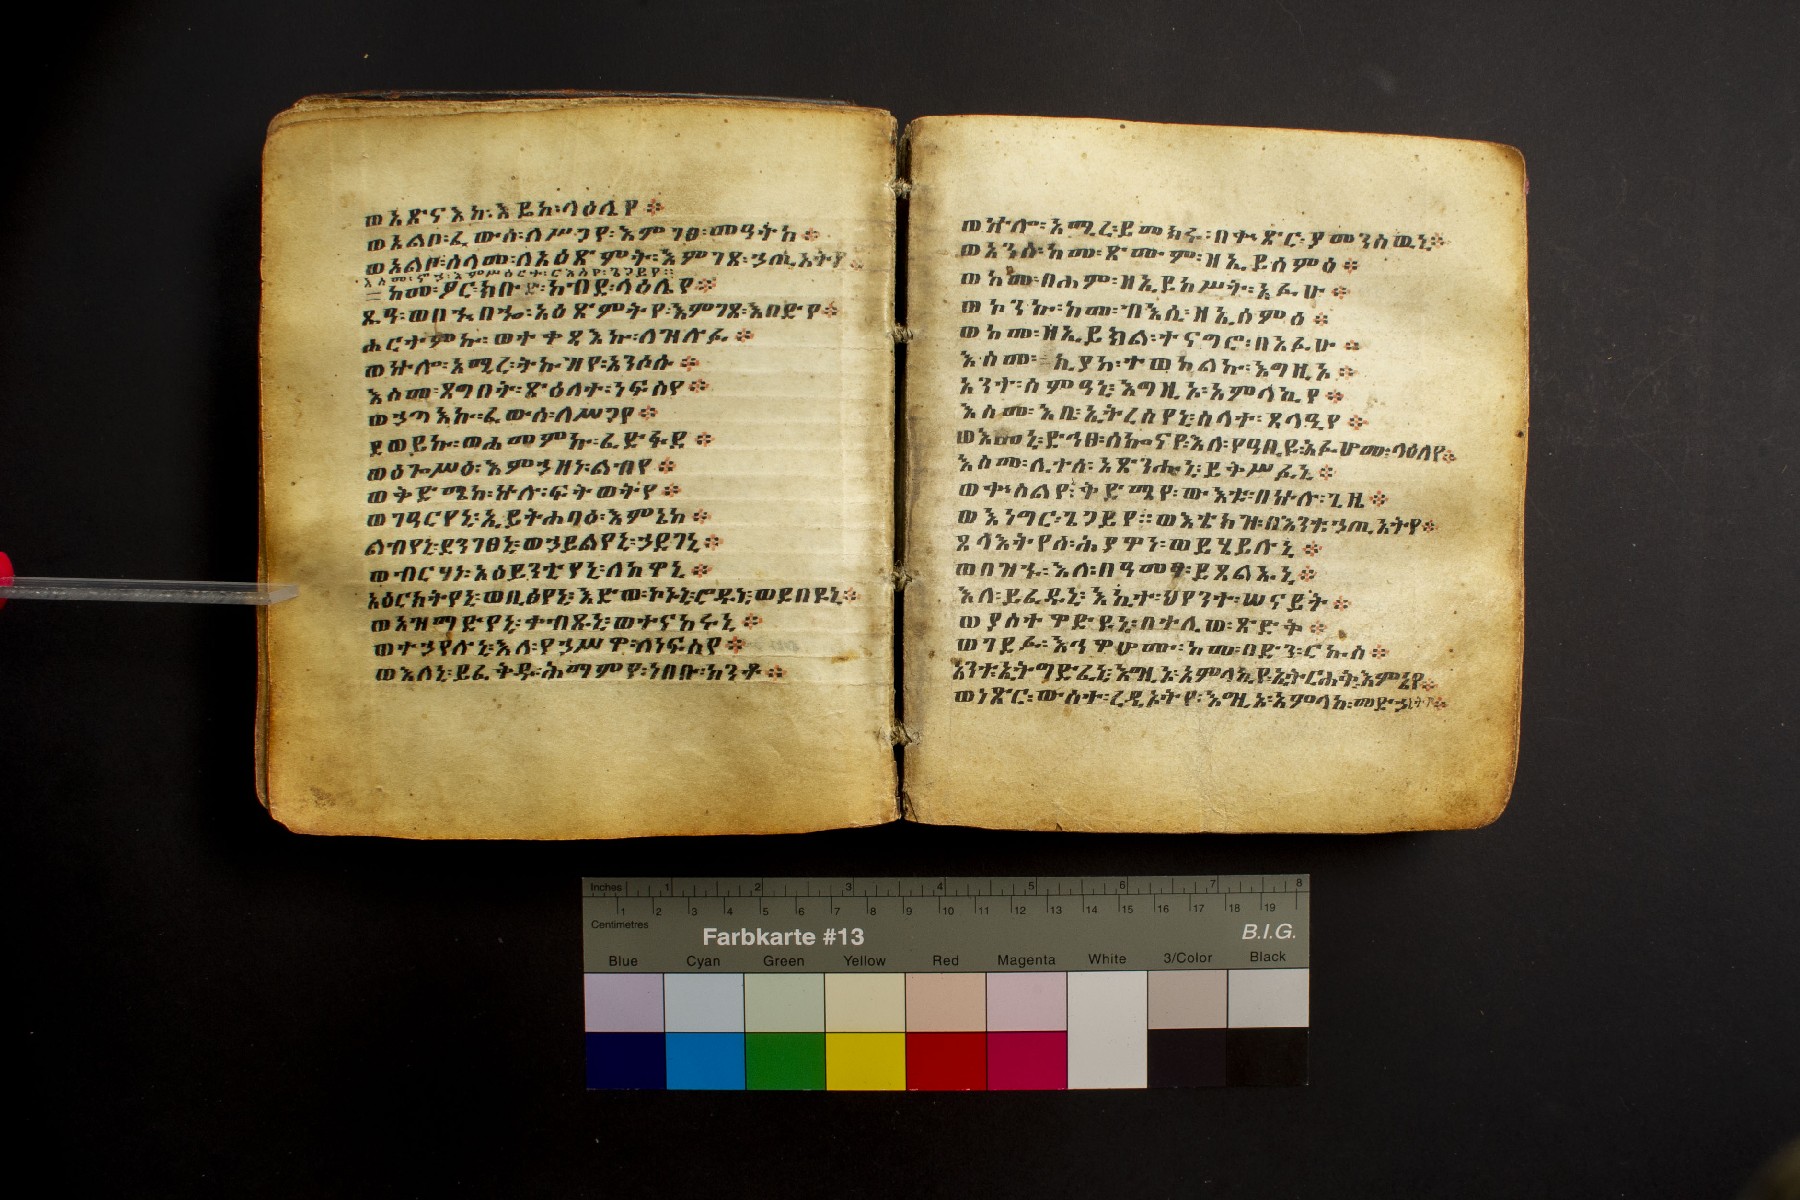 ወአጽናእከ፡እዴከ፡ላዕሌየ፨
ወአልቦ፡ፈውሰ፡ለሥጋየ፡እምገፀ፡መዓትከ፨
ወአልቦ፡ሰላመ፡ለአዕጽምት፡እምገጸ፡ኃጢአትየ፨
እስመ፡ ርእስየ፡ጌጋይየ፡፡
ከመ፡ጾር፡ክቡድ፡ከብደ፡ላዕሌየ፨
ጼዓ፡ወበኈበኈ፡አዕጽምትየ፡እምገጸ፡እበድየ፨
ሐርተምኩ፡ወተቀጻእኩ፡ለዝሉፉ፨
ወኵሎ፡አሚረ፡ትኩዝየ፡አንሶሱ፨
እስመ፡ጸግበት፡ጽዕለት፡ነፍስየ፨
ወኃጣእኩ፡ፈውሰ፡ለሥጋየ፨
ደወይኩ፡ወሐመምኩ፡ፈድፋደ፨
ወዕጐሥዕ፡እምኃዘነ፡ልብየ፨
ወቅድሜከ፡ኵሉ፡ፍትወትየ፨
ወገዓርየኒ፡ኢይትሐባዕ፡እምኔከ፨
ልብየኒ፡ደንገፀኒ፡ወኃይልየኒ፡ኃደገኒ፨
ወብርሃነ፡አዕይንቲየኒ፡ለከዋኒ፨
አዕርክትየኒ፡ወቢፅየኒ፡እድወ፡ኮኑኒ፡ሮዱኒ፡ወደበዩኒ፨
ወአዝማድየኒ፡ቀብጹኒ፡ወተናከሩኒ፨
ወተኃየሉኒ፡እለ፡የኃሥዋ፡ለነፍስየ፨
ወእለኒ፡ይፈትዱ፡ሕማምየ፡ነበቡ፡ከንቶ፨
ወኵሎ፡አሚረ፡ይመክሩ፡በቍጽር፡ያመንስዉኒ፨
ወአንሰ፡ከመ፡ጽሙም፡ዘኢይሰምዕ፨
ወከመ፡በሐም፡ዘኢይከሥት፡አፉሁ፨
ወኮንኩ፡ከመ፡ብእሲ፡ዘኢሰምዕ፨
ወከመ፡ዘኢይክል፡ተናግሮ፡በአፉሁ፨
እስመ፡ኪያከ፡ተወከልኩ፡እግዚአ፨
አንተ፡ስምዓኒ፡እግዚኦ፡አምላኪየ፨
እስመ፡እቤ፡ኢትረስየኒ፡ስላተ፡ጸላዒየ፨
ወእመኒ፡ድኅፀ፡ሰኰናየ፡እለ፡የዓቢዩ፡አፉሆሙ፡ላዕለየ፨
እስመ፡ሊተሰ፡አጽንሑኒ፡ይትሥፈኒ፨
ወቍስልየ፡ቅድሜየ፡ውእቱ፡በኵሉ፡ጊዜ፨
ወእነግር፡ጌጋይየ፡፡ወእቴክዝ፡በእንተ፡ኃጢአትየ፨
ጸላእትየሰ፡ሕያዋን፡ወይሄይሉኒ፨
ወበዝኁ፡እለ፡በዓመፃ፡ይጸልኡኒ፨
እለ፡ይፈዱኒ፡እኪተ፡ህየንተ፡ሠናይት፨
ወያስተዋድዩኒ፡በተሊወ፡ጽድቅ፨
ወገደፉ፡እኅዋሆሙ፡ከመ፡በድን፡ርኩስ፨
አንተ፡ኢትግድፈኒ፡እግዚኦ፡አምላኪየ፡ኢትርሐቅ፡እምኔየ፨
ወነጽር፡ውስተ፡ረዲኦትየ፡እግዚኦ፡አምላከ፡መድኃኒትየ፨